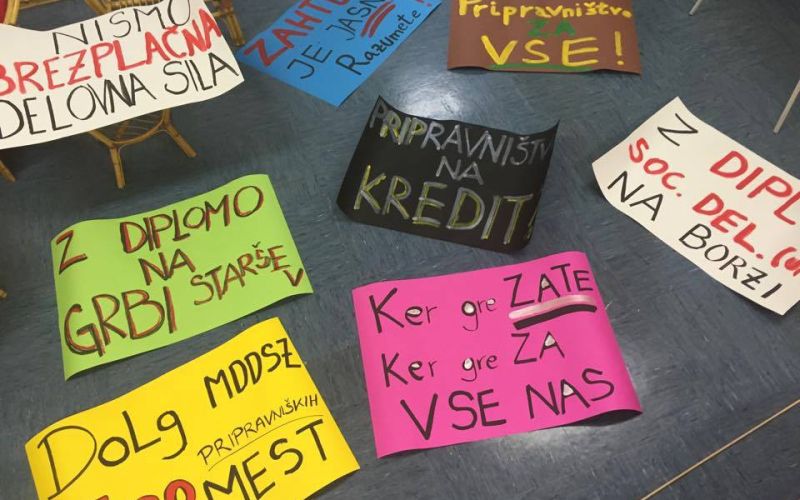 NISMO
BREZPLAČNA
DELOVNA SILA
JE JASNA
Razumete
Pripravništvo
ZA
VSE!
PRIPRAVNIŠTVO
NA
KREDIT!
Z
SOC. DEL.
NA BORZI
Z DIPLOMO
NA
GRBI STARŠEV
Ker gre ZATE
Ker gre ZA
VSE NAS
DoLg MDDSZ
PRIPRAVNIŠKIH
MEST